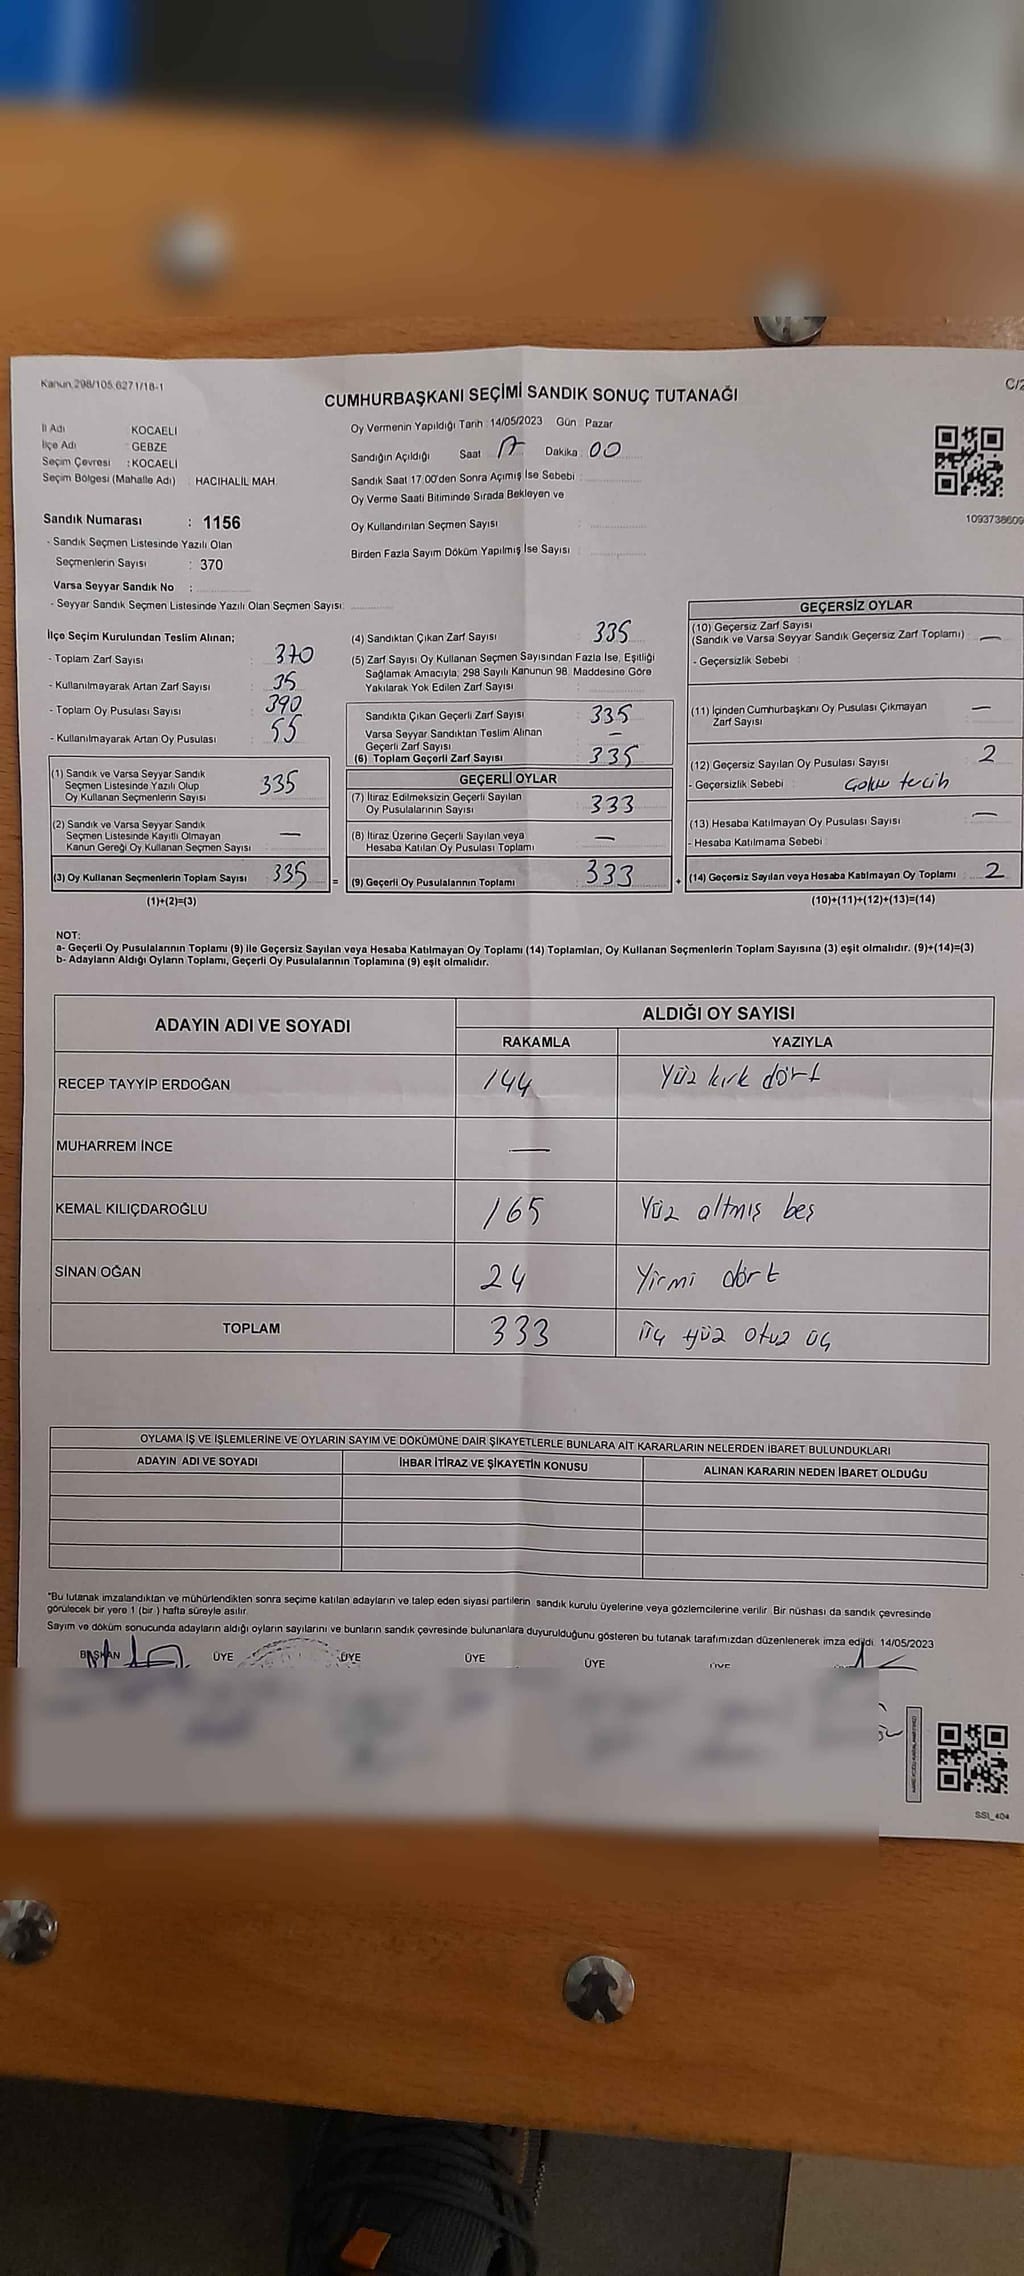 Kanun,298/105,6271/18-1
C/2
CUMHURBAŞKANI SEÇİMİ SANDIK SONUÇ TUTANAĞI
İl Adı KOCAELİ
İlçe Adı : GEBZE
Seçim Çevresi : KOCAELİ
Seçim Bölgesi (Mahalle Adı) : HACIHALİL MAH.
Sandık Numarası : 1156
- Sandık Seçmen Listesinde Yazılı Olan
Seçmenlerin Sayısı : 370
Varsa Seyyar Sandık No :
- Seyyar Sandık Seçmen Listesinde Yazılı Olan Seçmen Sayısı:
Oy Vermenin Yapıldığı Tarih : 14/05/2023 Gün : Pazar
Sandığın Açıldığı Saat 17 Dakika : 00
Sandık Saat 17:00'den Sonra Açımış İse Sebebi :
Oy Verme Saati Bitiminde Sırada Bekleyen ve
Oy Kullandırılan Seçmen Sayısı :
Birden Fazla Sayım Döküm Yapılmış İse Sayısı :
1093738609
İlçe Seçim Kurulundan Teslim Alınan;
- Toplam Zarf Sayısı : 370
- Kullanılmayarak Artan Zarf Sayısı : 35
- Toplam Oy Pusulası Sayısı : 390
- Kullanılmayarak Artan Oy Pusulası : 55
(1) Sandık ve Varsa Seyyar Sandık
Seçmen Listesinde Yazılı Olup
Oy Kullanan Seçmenlerin Sayısı 335
(2) Sandık ve Varsa Seyyar Sandık
Seçmen Listesinde Kayıtlı Olmayan
Kanun Gereği Oy Kullanan Seçmen Sayısı —
(3) Oy Kullanan Seçmenlerin Toplam Sayısı 335 =
(1)+(2)=(3)
(4) Sandıktan Çıkan Zarf Sayısı : 335
(5) Zarf Sayısı Oy Kullanan Seçmen Sayısından Fazla İse, Eşitliği
Sağlamak Amacıyla; 298 Sayılı Kanunun 98. Maddesine Göre
Yakılarak Yok Edilen Zarf Sayısı :
Sandıkta Çıkan Geçerli Zarf Sayısı : 335
Varsa Seyyar Sandıktan Teslim Alınan
Geçerli Zarf Sayısı : —
(6) Toplam Geçerli Zarf Sayısı : 335
GEÇERLİ OYLAR
(7) İtiraz Edilmeksizin Geçerli Sayılan
Oy Pusulalarının Sayısı : 333
(8) İtiraz Üzerine Geçerli Sayılan veya
Hesaba Katılan Oy Pusulası Toplamı : —
(9) Geçerli Oy Pusulalarının Toplamı : 333 +
GEÇERSİZ OYLAR
(10) Geçersiz Zarf Sayısı
(Sandık ve Varsa Seyyar Sandık Geçersiz Zarf Toplamı) : —
- Geçersizlik Sebebi :
(11) İçinden Cumhurbaşkanı Oy Pusulası Çıkmayan
Zarf Sayısı : —
(12) Geçersiz Sayılan Oy Pusulası Sayısı : 2
- Geçersizlik Sebebi : Çoklu tercih
(13) Hesaba Katılmayan Oy Pusulası Sayısı : —
- Hesaba Katılmama Sebebi :
(14) Geçersiz Sayılan veya Hesaba Katılmayan Oy Toplamı : 2
(10)+(11)+(12)+(13)=(14)
NOT:
a- Geçerli Oy Pusulalarının Toplamı (9) ile Geçersiz Sayılan veya Hesaba Katılmayan Oy Toplamı (14) Toplamları, Oy Kullanan Seçmenlerin Toplam Sayısına (3) eşit olmalıdır. (9)+(14)=(3)
b- Adayların Aldığı Oyların Toplamı, Geçerli Oy Pusulalarının Toplamına (9) eşit olmalıdır.
ADAYIN ADI VE SOYADI ALDIĞI OY SAYISI
RAKAMLA YAZIYLA
RECEP TAYYİP ERDOĞAN 144 Yüz kırk dört
MUHARREM İNCE —
KEMAL KILIÇDAROĞLU 165 Yüz altmış beş
SİNAN OĞAN 24 Yirmi dört
TOPLAM 333 üç yüz otuz üç
OYLAMA İŞ VE İŞLEMLERİNE VE OYLARIN SAYIM VE DÖKÜMÜNE DAİR ŞİKAYETLERLE BUNLARA AİT KARARLARIN NELERDEN İBARET BULUNDUKLARI
ADAYIN ADI VE SOYADI İHBAR İTİRAZ VE ŞİKAYETİN KONUSU ALINAN KARARIN NEDEN İBARET OLDUĞU
*Bu tutanak imzalandıktan ve mühürlendikten sonra seçime katılan adayların ve talep eden siyasi partilerin sandık kurulu üyelerine veya gözlemcilerine verilir. Bir nüshası da sandık çevresinde
görülecek bir yere 1 (bir) hafta süreyle asılır.
Sayım ve döküm sonucunda adayların aldığı oyların sayılarını ve bunların sandık çevresinde bulunanlara duyurulduğunu gösteren bu tutanak tarafımızdan düzenlenerek imza edildi. 14/05/2023
BAŞKAN ÜYE ÜYE ÜYE ÜYE
SSI_404